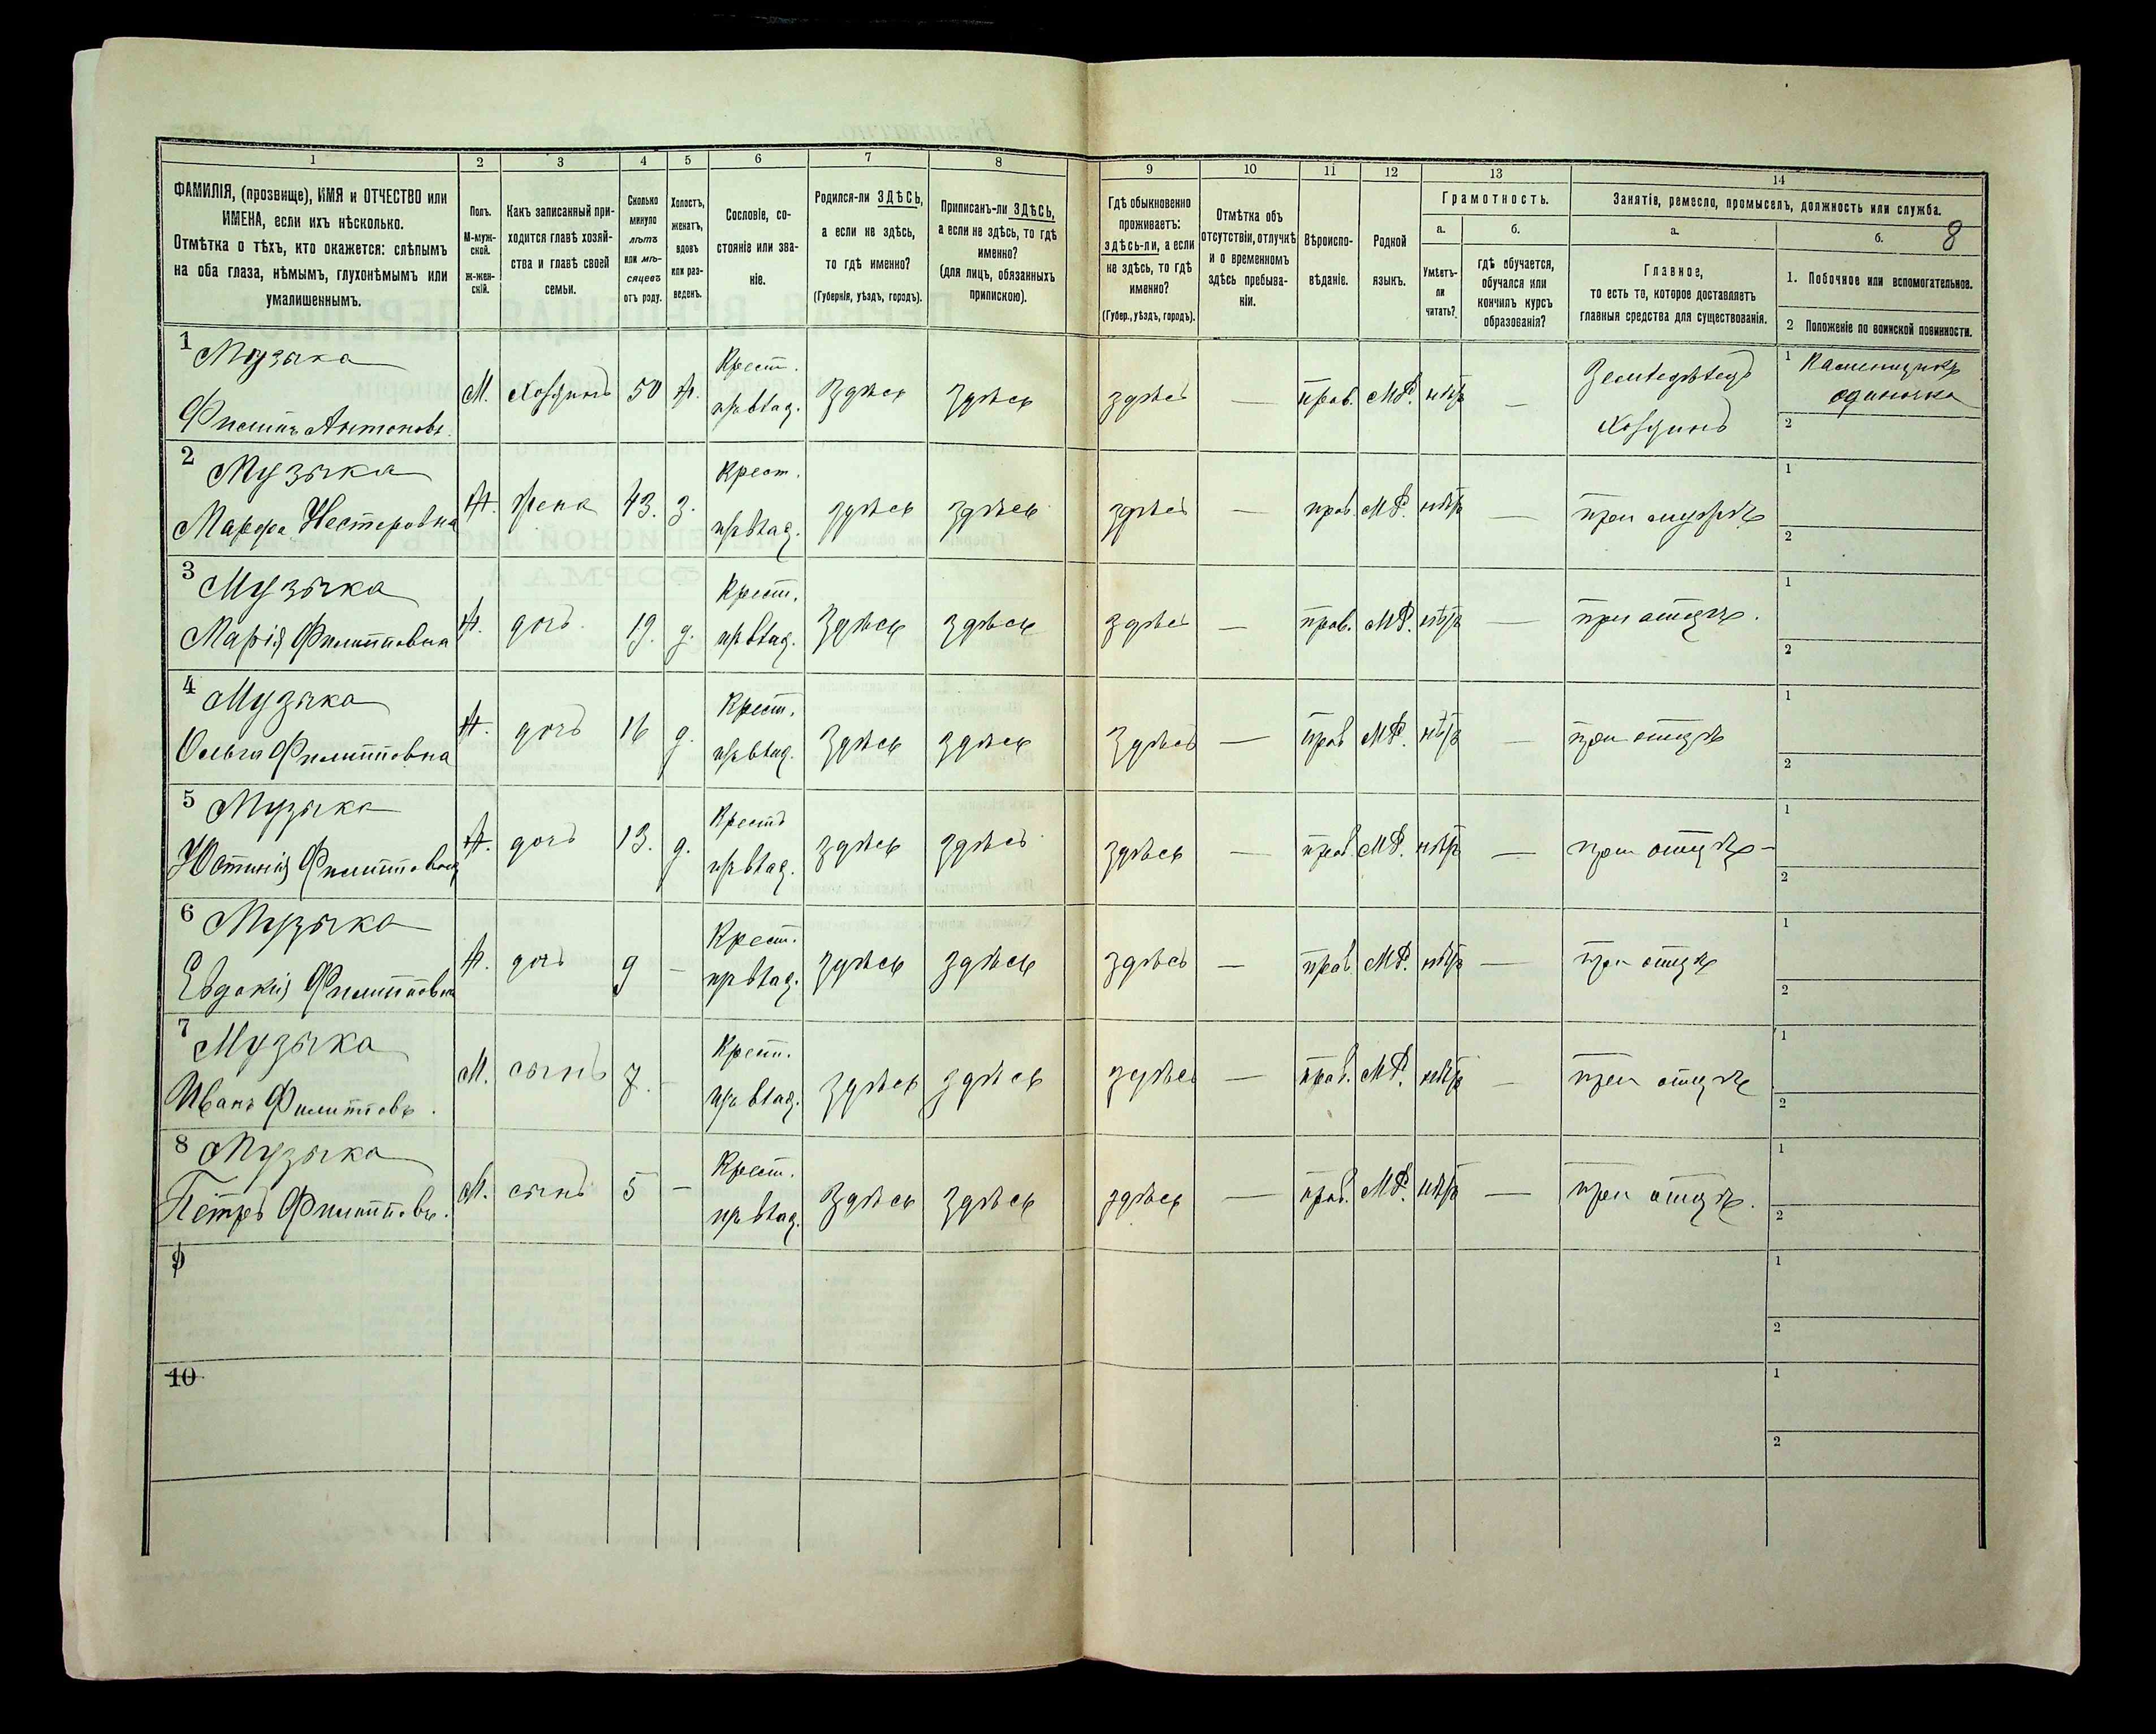 1 2 3 4 5 6 7 8 9 10 11 12 13 14
ФАМИЛІЯ, (прозвище), ИМЯ и ОТЧЕСТВО или
ИМЕНА, если ихъ нѣсколько.
Отмѣтка о тѣхъ, кто окажется: слѣпымъ
на оба глаза, нѣмымъ, глухонѣмымъ или
умалишеннымъ.
Полъ.
М-муж-
ской.
ж-жен-
скій.
Какъ записанный при-
ходится главѣ хозяй-
ства и главѣ своей
семьи.
Сколько
минуло
лѣтъ
или мѣ-
сяцевъ
отъ роду.
Холостъ,
женатъ,
вдовъ
или раз-
веденъ.
Сословіе, со-
стояніе или зва-
ніе.
Родился-ли ЗДѢСЬ,
а если не здѣсь,
то гдѣ именно?
(Губернія, уѣздъ, городъ).
Приписанъ-ли ЗДѢСЬ,
а если не здѣсь, то гдѣ
именно?
(для лицъ, обязанныхъ
припискою).
Гдѣ обыкновенно
проживаетъ:
здѣсь-ли, а если
не здѣсь, то гдѣ
именно?
(Губер., уѣздъ, городъ).
Отмѣтка объ
отсутствіи, отлучкѣ
и о временномъ
здѣсь пребыва-
ніи.
Вѣроиспо-
вѣданіе.
Родной
языкъ.
Грамотность.
а.
Умѣетъ-
ли
читать?
б.
гдѣ обучается,
обучался или
кончилъ курсъ
образованія?
Занятіе, ремесло, промыселъ, должность или служба.
8
а.
Главное,
то есть то, которое доставляетъ
главныя средства для существованія.
б.
1. Побочное или вспомогательное.
2 Положеніе по воинской повинности.
1 Музыка Крест. Земледѣлецъ 1 Каменщикъ
М. Хозяинъ 50 ж. здѣсь здѣсь здѣсь — прав. МР. нѣтъ — одиночка
Филипъ Антоновъ. пр. влад. Хозяинъ 2
2 Музыка Крест. 1
Марфа Нестеровна Ж. жена 43. з. пр. влад. здѣсь здѣсь здѣсь — прав. МР. нѣтъ — при мужѣ
2
3 Музыка Крест. 1
Марія Филипповна Ж. дочь 19. д. пр. влад. здѣсь здѣсь здѣсь — прав. МР. нѣтъ — при отцѣ.
2
4 Музыка Крест. 1
Ольга Филипповна Ж. дочь 16 д. пр. влад. здѣсь здѣсь здѣсь — прав МР. нѣтъ — при отцѣ
2
5 Музыка Крестъ 1
Юстинія Филипповна Ж. дочь 13. д. пр. влад. здѣсь здѣсь здѣсь — прав. МР. нѣтъ — при отцѣ
2
6 Музыка Крест. 1
Евдокія Филипповна Ж. дочь 9 — пр. влад. здѣсь здѣсь здѣсь — прав. МР. нѣтъ — при отцѣ
2
7 Музыка Крест. 1
Иванъ Филипповъ. М. сынъ 7. — пр. влад. здѣсь здѣсь здѣсь — прав. МР. нѣтъ — при отцѣ
2
8 Музыка Крест. 1
Петръ Филипповъ. М. сынъ 5 — пр. влад. здѣсь здѣсь здѣсь — прав. МР. нѣтъ — при отцѣ.
2
9 1
2
10 1
2